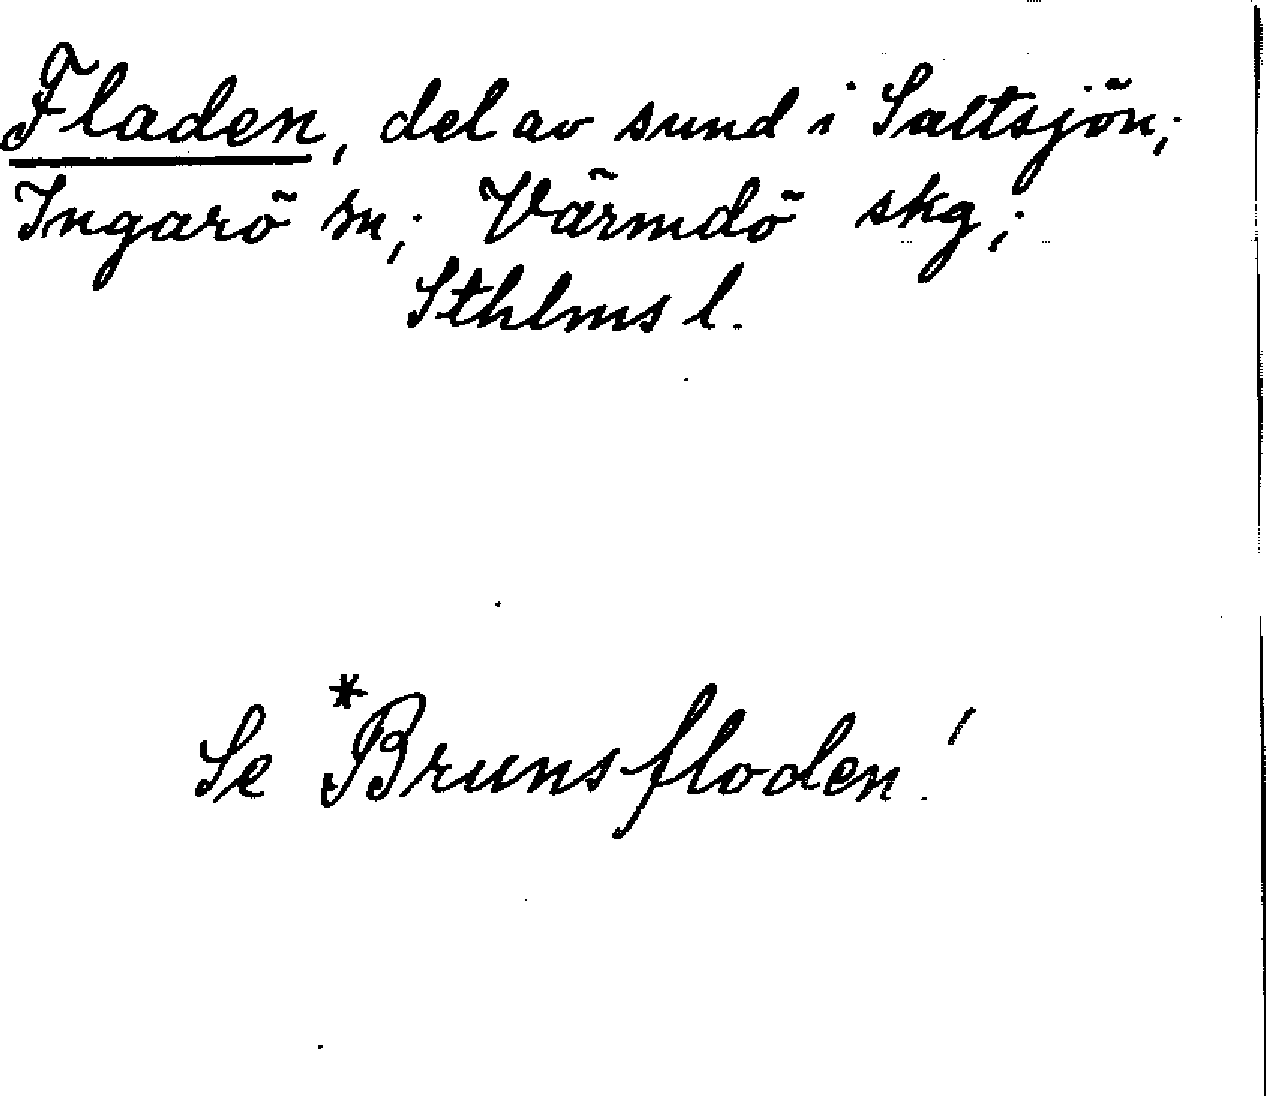 Fladen, del av sund i Saltsjön;
Ingarö sn; Värmdö skg;
Sthlms l.
Se *Brunsfloden!